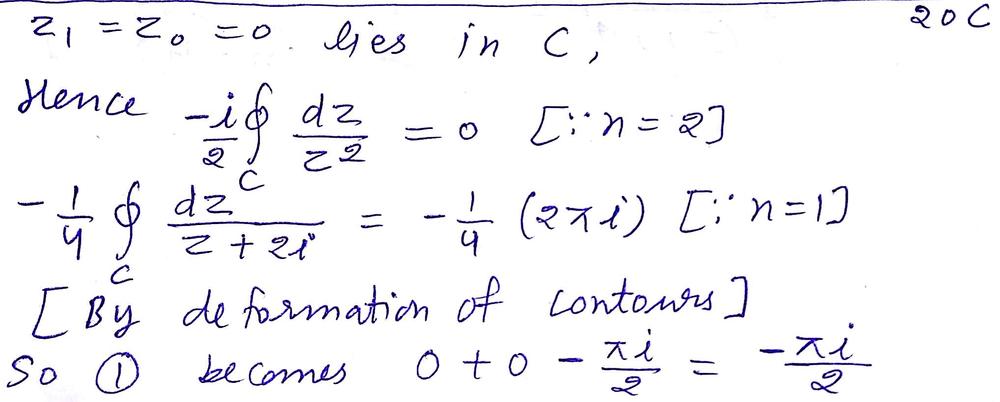 20C
z₁ = z₀ = 0. lies in C,
Hence -i/2 ∮_C dz/z² = 0 [∵ n = 2]
-1/4 ∮_C dz/(z + 2i) = -1/4 (2πi) [∵ n=1]
[By deformation of contours]
So ① becomes 0 + 0 - πi/2 = -πi/2